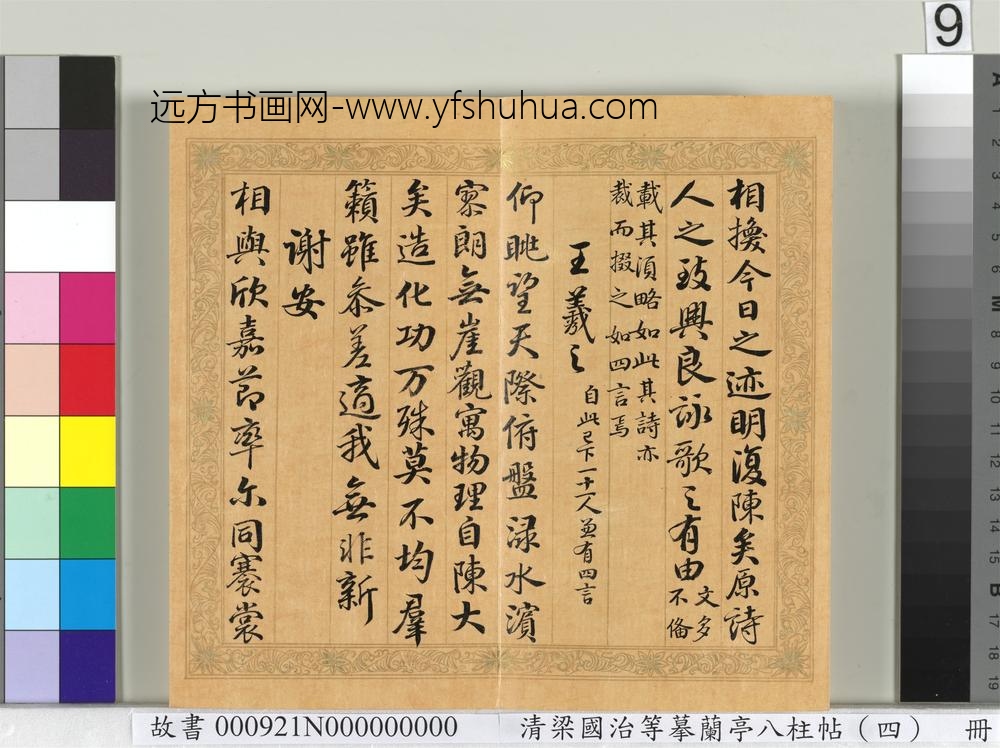 9
远方书画网-www.yfshuhua.com
相換今日之迹明復陳矣原詩
人之致興良詠歌之有由文多
不備
載其須略如此其詩亦
裁而掇之如四言焉
王羲之自此已下一十一人並有四言
仰眺望天際俯盤淥水濱
寥朗無崖觀寓物理自陳大
矣造化功万殊莫不均羣
籟雖叅差適我無非新
謝安
相與欣嘉節率尔同褰裳
故書 000921N000000000 清梁國治等摹蘭亭八柱帖（四） 冊